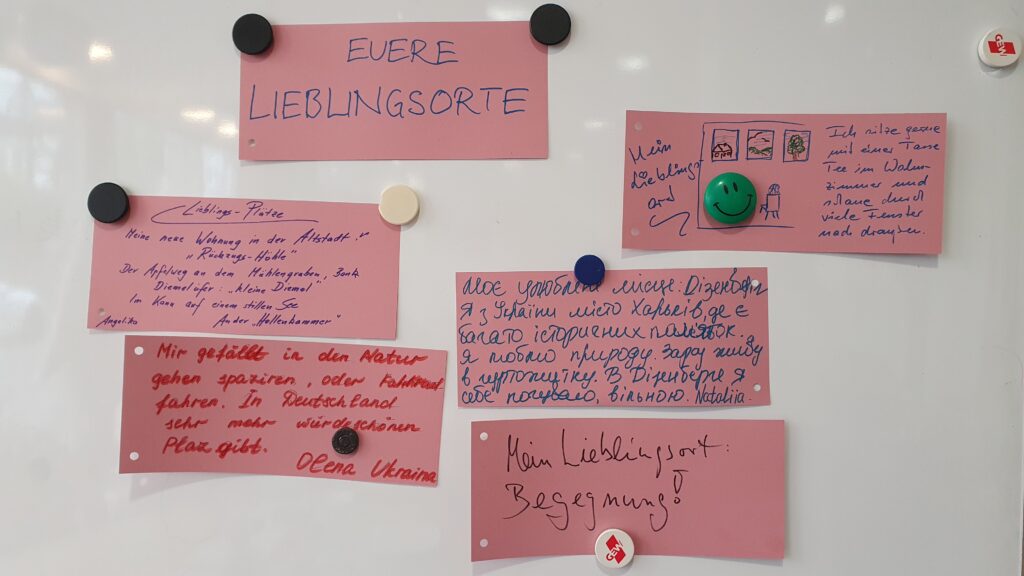 EUERE
LIEBLINGSORTE
Mein
Lieblings-
ord
Ich sitze gerne
mit einer Tasse
Tee im Wohn-
zimmer und
schaue durch
viele Fenster
nach draußen.
Lieblings-Plätze
Meine neue Wohnung in der Altstadt
"Rückzugs-Höhle"
Der Apfelweg an dem Mühlengraben, Bank
Diemelufer: "kleine Diemel"
Im Kanu auf einem stillen See
Angelika An der "Hollenhammer"
Моє улюблене місце: Дізенберг
Я з України місто Харьків, де є
багато історичних пам'яток.
Я люблю природу. Зараз живу
в гуртожитку. В Дізенберге я
себе почуваю, вільною. Nataliia.
Mir gefällt in den Natur
gehen spaziren, oder Fahrrad
fahren. In Deutschland
sehr mehr würdeschönen
Plaz gibt.
Olena Ukraina
Mein Lieblingsort:
Begegnung!
GEW
GEW